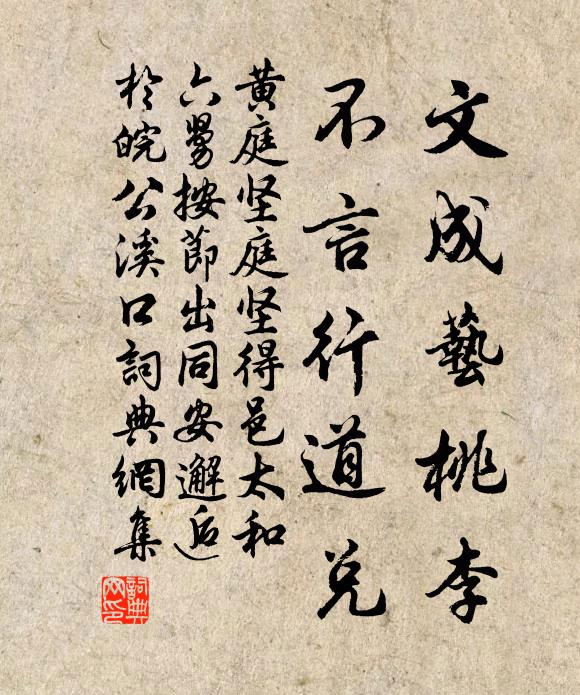 文成藝桃李
不言行道兌
黄庭坚庭坚得邑太和
六舅按節出同安邂逅
於皖公溪口詞典網集
詞典
網印